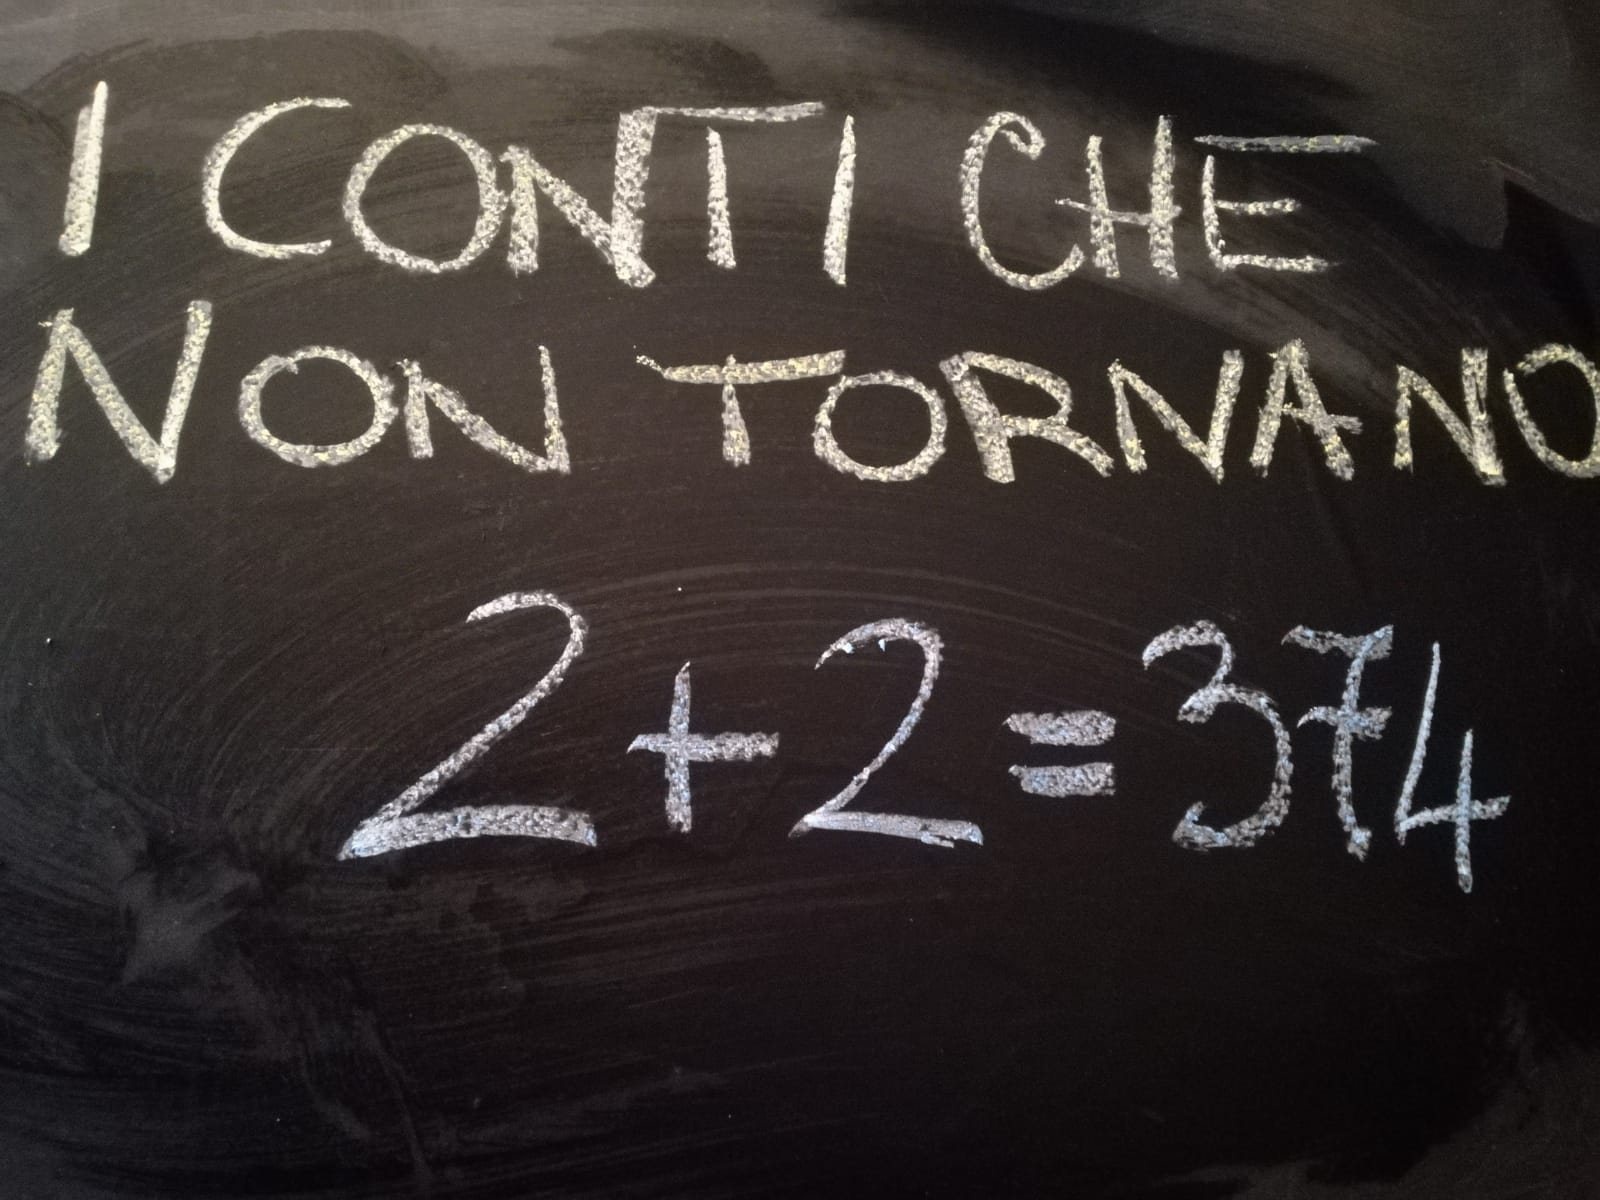 I CONTI CHE
NON TORNANO
2+2=374